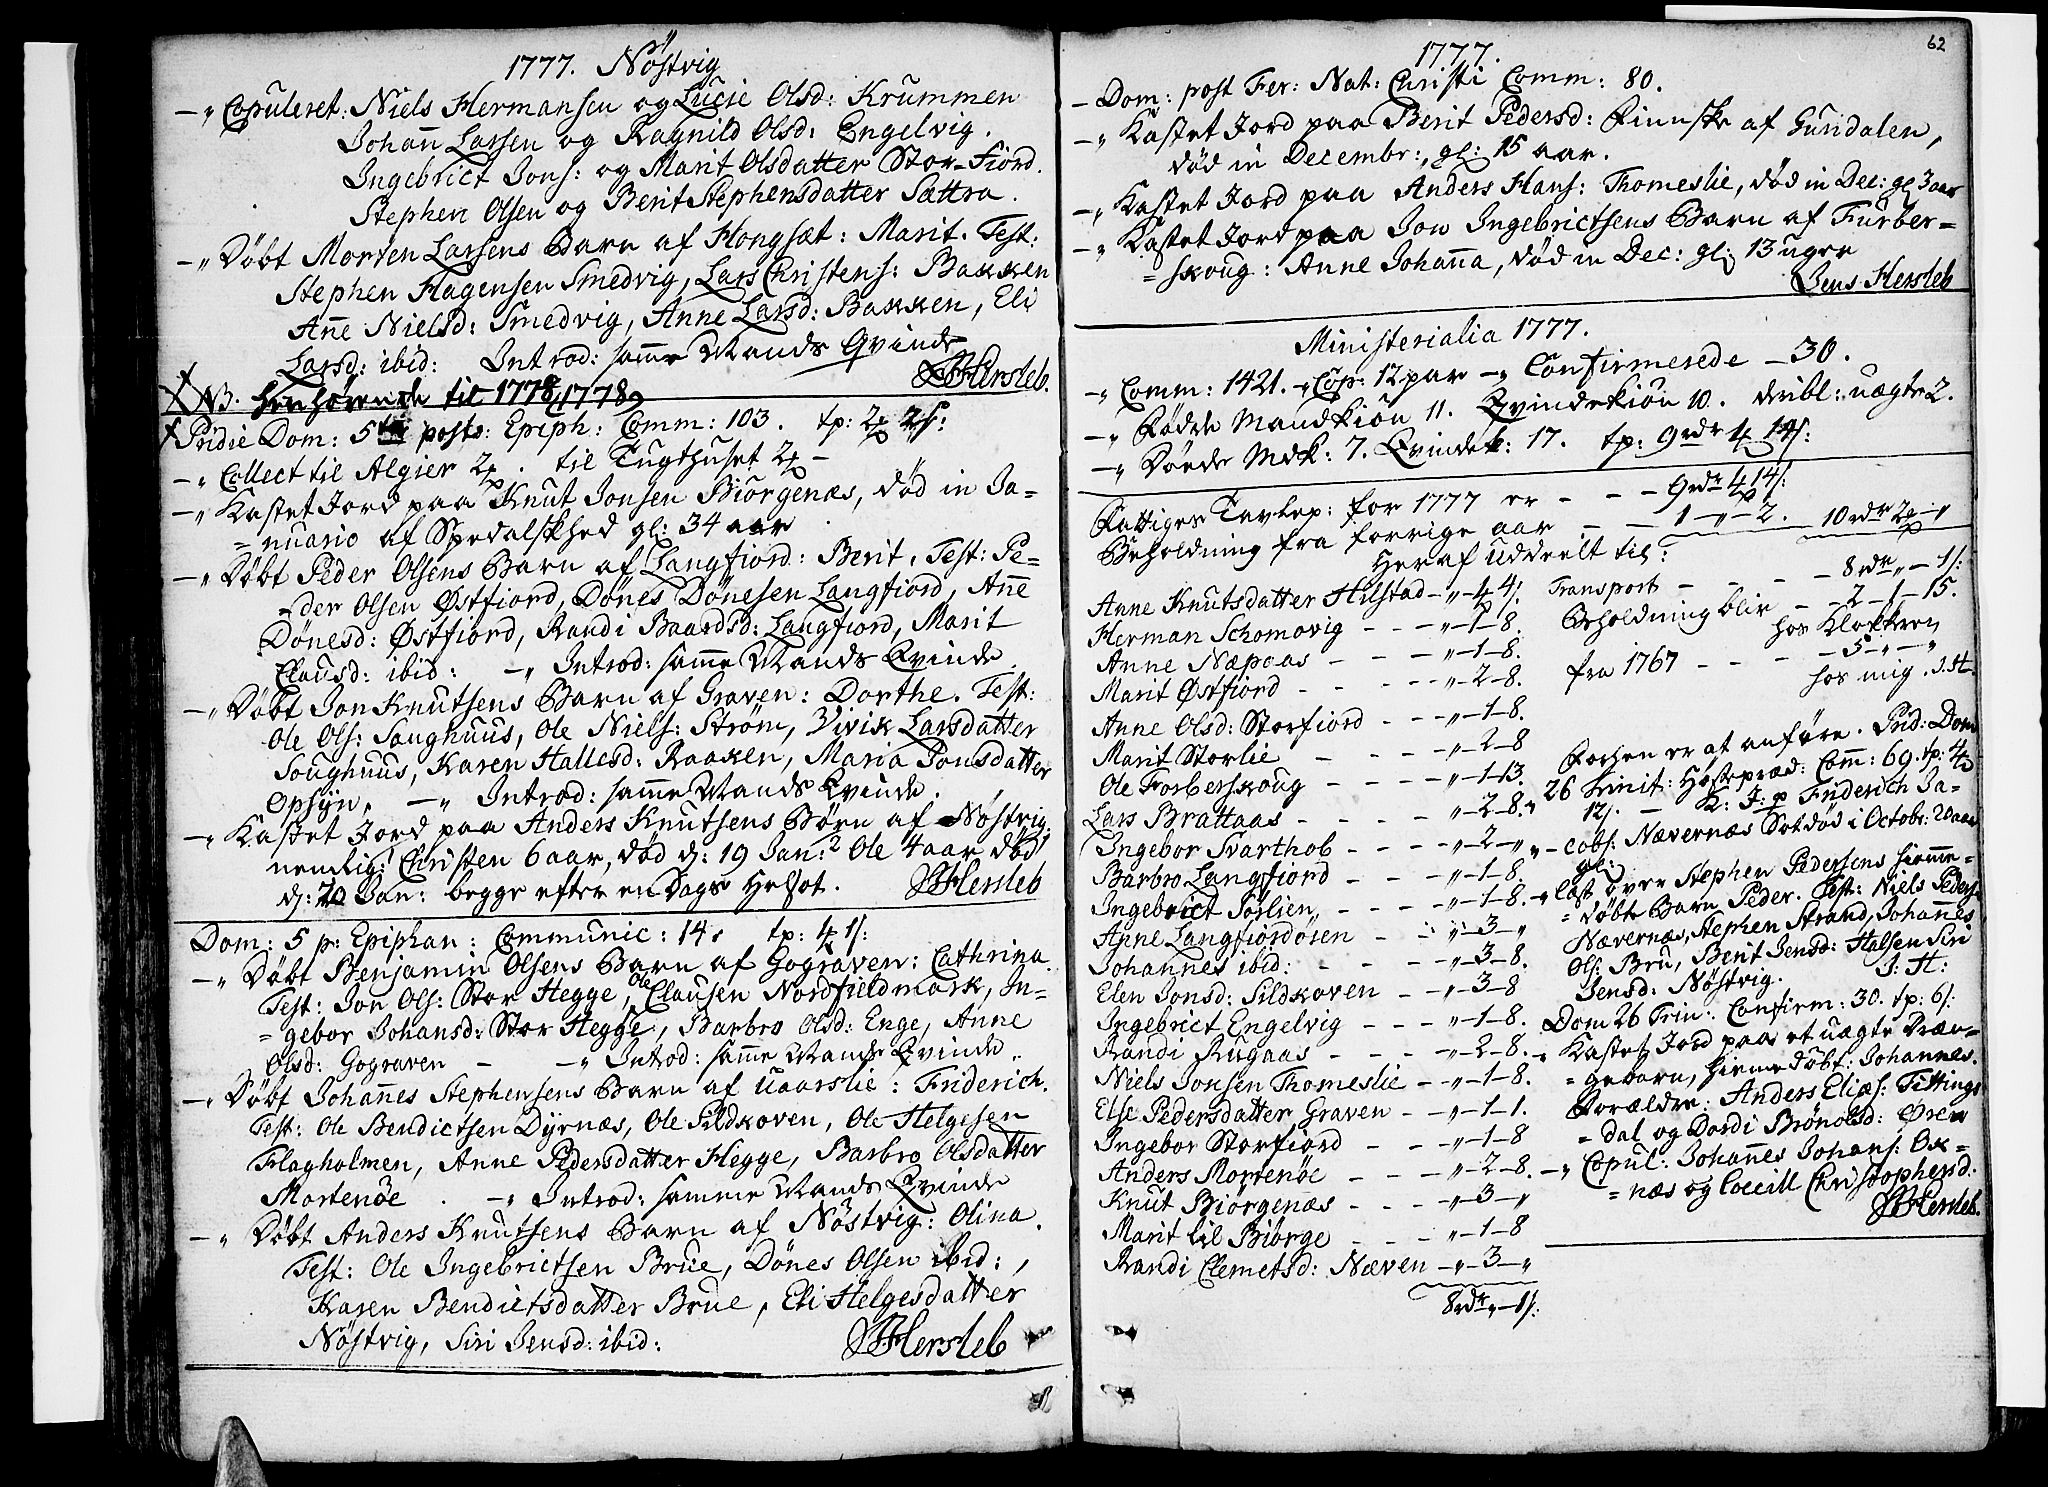 1777. Nöstvig
—„ Copuleret: Niels Hermansen og Lucie Olsd: Krummen
Johan̄ Larsen og Ragnild Olsd: Engelvig.
Ingebrict Jons: og Marit Olsdatter Stor-Fiord.
Stephen Olsen og Berit Stephensdatter Sættra.
—„ Döbt Morten Larsens Barn af Hongsæt: Marit. Test:
Stephen Hagensen Smedvig, Lars Christens: Bakken
An̄e Nielsd: Smedvig, Anne Larsd: Bakken, Eli
Larsd: ibid: Introd: samme Mands Qvinde
JHersleb.
NB. Henhörende til 1778
Pridie Dom: 5 post: Epiph: Comm: 103. tp: 2 2s:
—„ Collect til Algier 2 . til Tugthuset 2 –
—„ Kastet Jord paa Knut Jonsen Biörgenæs, död in Ja=
=nuario af Spedalskhed gl: 34 aar
—„ Döbt Peder Olsens Barn af Langfiord: Berit. Test: Pe=
=der Olsen Østfiord, Dönes Dönesen Langfiord, An̄e
Dönesd: Østfiord, Randi Baardsd: Langfiord, Marit
Clausd: ibid: —„ Introd: samme Mands Qvinde.
—„ Döbt Jon Knutsens Barn af Graven: Dorthe. Test:
Ole Ols: Soughuus, Ole Niels: Ström, Zivik Larsdatter
Soughuus, Karen Hallesd: Raaken, Maria Jonsdatter
Opsÿn. —„ Introd: samme Mands Qvinde.
—„ Kastet Jord paa Anders Knutsens Börn af Nöstvig
nemlig: Christen 6 aar, död d: 19 Jan: Ole 4 aar död
d: 20 Jan: begge efter en Dags Helsot. JHersleb
Dom: 5 p: Epiphan: Communic: 14. tp: 4 1s:
—„ Döbt Benjamin Olsens Barn af Gograven: Cathrina.
Test: Jon Ols: Stor Hegge, Ole Clausen Nordfieldmark, In=
=gebor Johansd: Stor Hegge, Barbro Olsd: Enge, Anne
Olsd: Gograven — —„ Introd: samme Mands Qvinde.
—„ Döbt Johannes Stephensens Barn af Uaarslie: Friderich.
Test: Ole Bendictsen Dyrnæs, Ole Sildkoven, Ole Helgesen
Flagholmen, Anne Pedersdatter Hegge, Barbro Olsdatter
Mortenöe. —„ Introd: samme Mands Qvinde
—„ Döbt Anders Knutsens Barn af Nöstvig: Olina.
Test: Ole Ingebrictsen Brue, Dönes Olsen ibid:,
Karen Bendictsdatter Brue, Eli Helgesdatter
Nöstvig, Siri Jensd: ibid: JHersleb
62
1777.
— Dom: post Fer: Nat: Christi Comm: 80.
—„ Kastet Jord paa Berit Pedersd: Finnske af Gundalen,
död in Decembr:, gl: 15 aar.
—„ Kastet Jord paa Anders Hans: Thomeslie, död in Dec: gl 3 aar
—„ Kastet Jord paa Jon Ingebrictsens Barn af Furber=
=skoug: Anne Johanna, död in Dec: gl: 13 uger
Jens Hersleb
Ministerialia 1777.
—„ Comm: 1421. —„ Cop: 12 par —„ Confirmerede — 30.
—„ Födde Mandkiön 11. Qvindekiön 10. deribl: uægte 2.
—„ Döede Mdk: 7. Qvindek: 17. tp: 9 rdr 4 14s:
Fattiges Tavlep: for 1777 er - - - 9 rdr 4 14s:
Beholdning fra forrige aar - - 1 –„– 2. 10 rdr 2 –„
Heraf uddeelt til:
Anne Knutsdatter Hilstad –„– 4 4s.
Herman Schomovig - - –„–1–8.
Anne Næpaas - - - –„–1–8.
Marit Østfiord - - - –„–2–8.
Anne Olsd: Storfiord - - - –„–1–8.
Marit Storlie - - - –„–2–8
Ole Forberskoug - - - –„–1–13.
Lars Brattaas - - - - „–2–8.
Ingebor Svarthob - - - –„–2–„
Barbro Langfiord - - - „–1–8.
Ingebrict Sorlien - - - „–1–8.
Anne Langfiordösen - - „–3–„
Johannes ibid: - - - „–3–8.
Elen Jonsd: Sildkoven - –„–3–8
Ingebrict Engelvig - - - „–1–8.
Randi Rugaas - - - - „–2–8.
Niels Jonsen Thomeslie - –„–1–8.
Else Pedersdatter Graven - –„–1–1.
Ingebor Storfiord - - –„–1–8
Anders Mortenöe - - - „–2–8.
Knut Biörgenæs - - - „–3–„
Marit lil Biörge - - - „–1–8
Randi Clemetsd: Næven –„–3–„
8 rdr „–1s:
Transport - - - - 8 rdr „– 1s:
Beholdning bliv - - 2–1–15.
hos Klokkeren
fra 1767 - - - - 5–„–„
hos mig. J. H.
Forhen er at anföre. Prid: Dom
26 Trinit: Höstepræd: Comm: 69. tp: 4
12s. — K: J: p Friderich Ja=
=cobs: Nævernæs Sotdöd i Octobr: 20 aar
gl:
—„ Cast over Stephen Pedersens hiemme=
=döbte Barn Peder. Test: Niels Peders:
Nævernæs, Stephen Strand, Johannes
Ols: Bru, Berit Jensd: Halsen Siri
Jensd: Nöstvig. J: H:
Dom 26 Trin: Confirm: 30. tp: 6s:
—„ Kastet Jord paa et uægte Dræn=
=gebarn, hiemedöbt: Johannes.
Forældre: Anders Elias: Fittings
=dal og Dordi Brönolsd: Ören
—„ Copul: Johannes Johans: Ox=
=næs og Coecill Christophersd:
JHersleb.